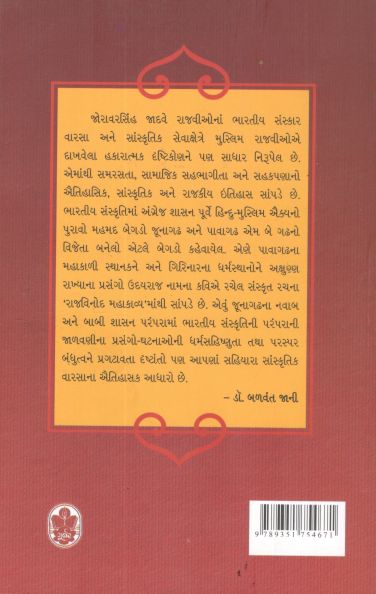 જોરાવરસિંહ જાદવે રાજવીઓનાં ભારતીય સંસ્કાર
વારસા અને સાંસ્કૃતિક સેવાક્ષેત્રે મુસ્લિમ રાજવીઓએ
દાખવેલા હકારાત્મક દૃષ્ટિકોણને પણ સાધાર નિરૂપેલ છે.
એમાંથી સમરસતા, સામાજિક સહભાગીતા અને સહકપણાનો
ઐતિહાસિક, સાંસ્કૃતિક અને રાજકીય ઇતિહાસ સાંપડે છે.
ભારતીય સંસ્કૃતિમાં અંગ્રેજ શાસન પૂર્વે હિન્દુ-મુસ્લિમ ઐક્યનો
પુરાવો મહમદ બેગડો જૂનાગઢ અને પાવાગઢ એમ બે ગઢનો
વિજેતા બનેલો એટલે બેગડો કહેવાયેલ. એણે પાવાગઢના
મહાકાળી સ્થાનકને અને ગિરિનારના ધર્મસ્થાનોને અક્ષુણ્ણ
રાખ્યાના પ્રસંગો ઉદયરાજ નામના કવિએ રચેલ સંસ્કૃત રચના
‘રાજવિનોદ મહાકાવ્ય’માંથી સાંપડે છે. એવું જૂનાગઢના નવાબ
અને બાબી શાસન પરંપરામાં ભારતીય સંસ્કૃતિની પરંપરાની
જાળવણીના પ્રસંગો-ઘટનાઓની ધર્મસહિષ્ણુતા તથા પરસ્પર
બંધુત્વને પ્રગટાવતા દૃષ્ટાંતો પણ આપણાં સહિયારા સાંસ્કૃતિક
વારસાના ઐતિહાસક આધારો છે.
– ડૉ. બળવંત જાની
ગુર્જર
9 789351 754671